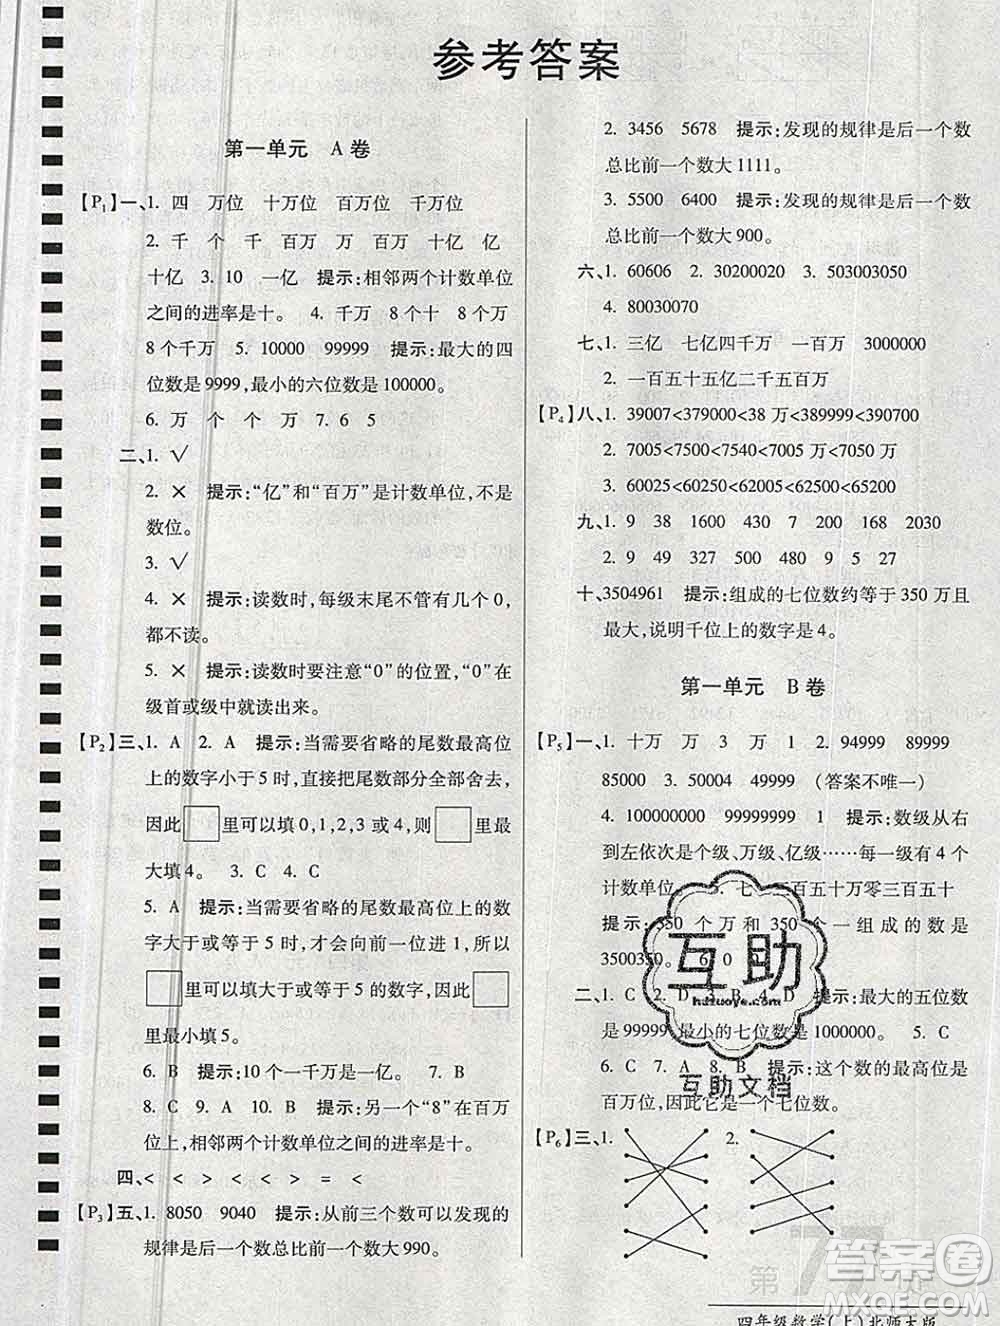 参考答案
第一单元 A卷
【P1】一、1. 四 万位 十万位 百万位 千万位
2. 千 个 千 百万 万 百万 十亿 亿
十亿 3. 10 一亿 提示:相邻两个计数单位
之间的进率是十。 4. 千万 8个十 8个万
8个千万 5. 10000 99999 提示:最大的四
位数是9999,最小的六位数是100000。
6. 万 个 个 万 7. 6 5
二、1. √
2. × 提示:“亿”和“百万”是计数单位,不是
数位。
3. √
4. × 提示:读数时,每级末尾不管有几个0,
都不读。
5. × 提示:读数时要注意“0”的位置,“0”在
级首或级中就读出来。
【P2】三、1. A 2. A 提示:当需要省略的尾数最高位
上的数字小于5时,直接把尾数部分全部舍去,
因此□里可以填0,1,2,3或4,则□里最
大填4。 3. C 4. C
5. A 提示:当需要省略的尾数最高位上的数
字大于或等于5时,要向前一位进1,所以
□里可以填大于或等于5的数字,因此□
里最小填5。
6. B 提示:10个一千万是一亿。 7. B
8. C 9. A 10. C 提示:另一个“8”在百万
位上,相邻两个计数单位之间的进率是十。
四、< < > > = <
【P3】五、1. 8050 9040 提示:从前三个数可以发现的
规律是后一个数总比前一个数大990。
2. 3456 5678 提示:发现的规律是后一个数
总比前一个数大1111。
3. 5500 6400 提示:发现的规律是后一个数
总比前一个数大900。
六、1. 60606 2. 30200020 3. 503003050
4. 80030070
七、1. 三亿 七亿四千万 一百万 3000000
2. 一百五十五亿二千五百万
【P4】八、1. 39007<379000<38万<389999<390700
2. 7005<7500<7005万<7050万<7500万
3. 60025<60250<60502<62050<65002
九、1. 9 38 1600 430 7 200 168 2030
2. 9 49 327 500 480 9 5 27
十、3504961 提示:组成的七位数约等于350万且
最大,说明千位上的数字是4。
第一单元 B卷
【P5】一、1. 十万 万 3 万 1 2. 94999 89999
85000 3. 50004 49999 (答案不唯一)
4. 100000000 99999999 1 提示:数级从右
到左依次是个级、万级、亿级……每一级有4个
计数单位。 5. 七 三百五十万零三百五十
提示:350个万和350个一组成的数是
3500350。 6. 0
二、1. C 2. D 3. B 4. D 提示:最大的五位数
是99999,最小的七位数是1000000。 5. C
6. C 7. A 8. B 提示:这个数的最高位是
百万位,因此它是一个七位数。
【P6】三、1. 2.
互助
huzuoye.com
互助文档
第 77 页
答案圈
MXQE.COM
四年级数学(上)北师大版